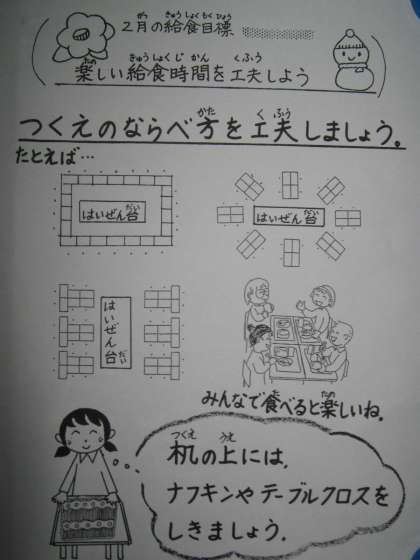 2月の給食目標
楽しい給食時間を工夫しよう
つくえのならべ方を工夫しましょう。
たとえば…
はいぜん台
はいぜん台
はいぜん台
みんなで食べると楽しいね。
机の上には、
ナフキンやテーブルクロスを
しきましょう。